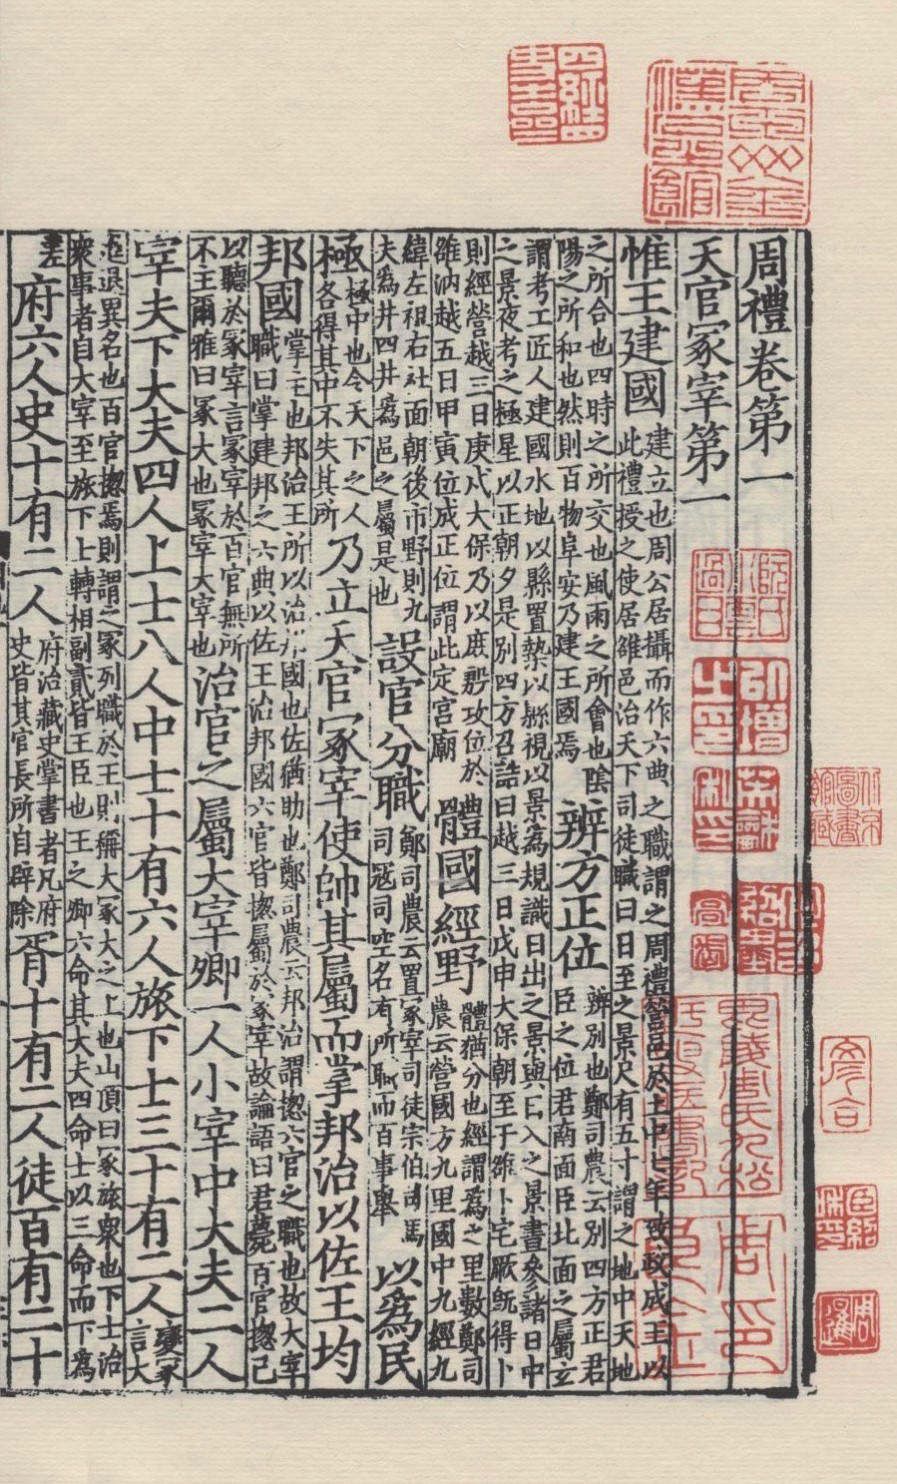 周禮卷第一
天官冢宰第一
惟王建國建立也周公居攝而作六典之職謂之周禮營邑於土中七年致政成王以此禮授之使居雒邑治天下司徒職曰日至之景尺有五寸謂之地中天地
之所合也四時之所交也風雨之所會也陰陽之所和也然則百物阜安乃建王國焉辨方正位辨別也鄭司農云別四方正君臣之位君南面臣北面之屬立
謂考工匠人建國水地以縣置槷以縣視以景為規識日出之景與日入之景晝參諸日中之景夜考之極星以正朝夕是別四方召誥曰越三日戊申大保朝至于雒卜宅厥既得卜
則經營越三日庚戌大保乃以庶殷攻位於雒汭越五日甲寅位成正位謂此定宮廟體國經野體猶分也經謂為之里數鄭司農云營國方九里國中九經九
緯左祖右社面朝後市野則九夫為井四井為邑之屬是也設官分職鄭司農云置冢宰司徒宗伯司馬司寇司空各有所職而百事舉以為民
極極中也令天下之人各得其中不失其所乃立天官冢宰使帥其屬而掌邦治以佐王均
邦國掌主也邦治王所以治邦國也佐猶助也鄭司農云邦治謂揔六官之職也故大宰職曰掌建邦之六典以佐王治邦國六官皆揔屬於冢宰故論語曰君薨百官揔己
以聽於冢宰言冢宰於百官無所不主爾雅曰冢大也冢宰大宰也治官之屬大宰卿一人小宰中大夫二人
宰夫下大夫四人上士八人中士十有六人旅下士三十有二人變冢言大
進退異名也百官揔焉則謂之冢列職於王則稱大冢大之上也山頂曰冢旅眾也下士治眾事者自大宰至旅下士轉相副貳皆王臣也王之卿六命其大夫四命士以三命而下為
差府六人史十有二人府治藏史掌書者凡府史皆其官長所自辟除胥十有二人徒百有二十